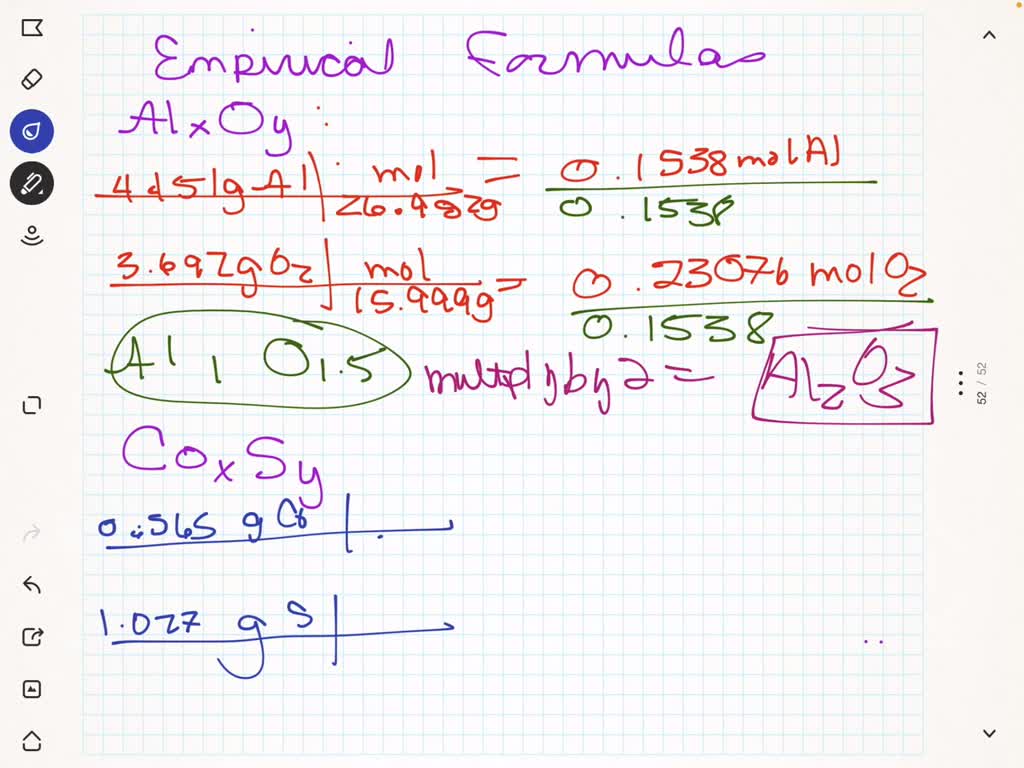 Empirical Formulas
AlxOy :
4.151g Al | mol / 26.982g = 0.1538 mol Al / 0.1538
3.692g O2 | mol / 15.9999g = 0.23076 mol O2 / 0.1538
Al1 O1.5 multiply by 2 = Al2O3
CoxSy
0.565 g Co
1.027 g S
52 / 52